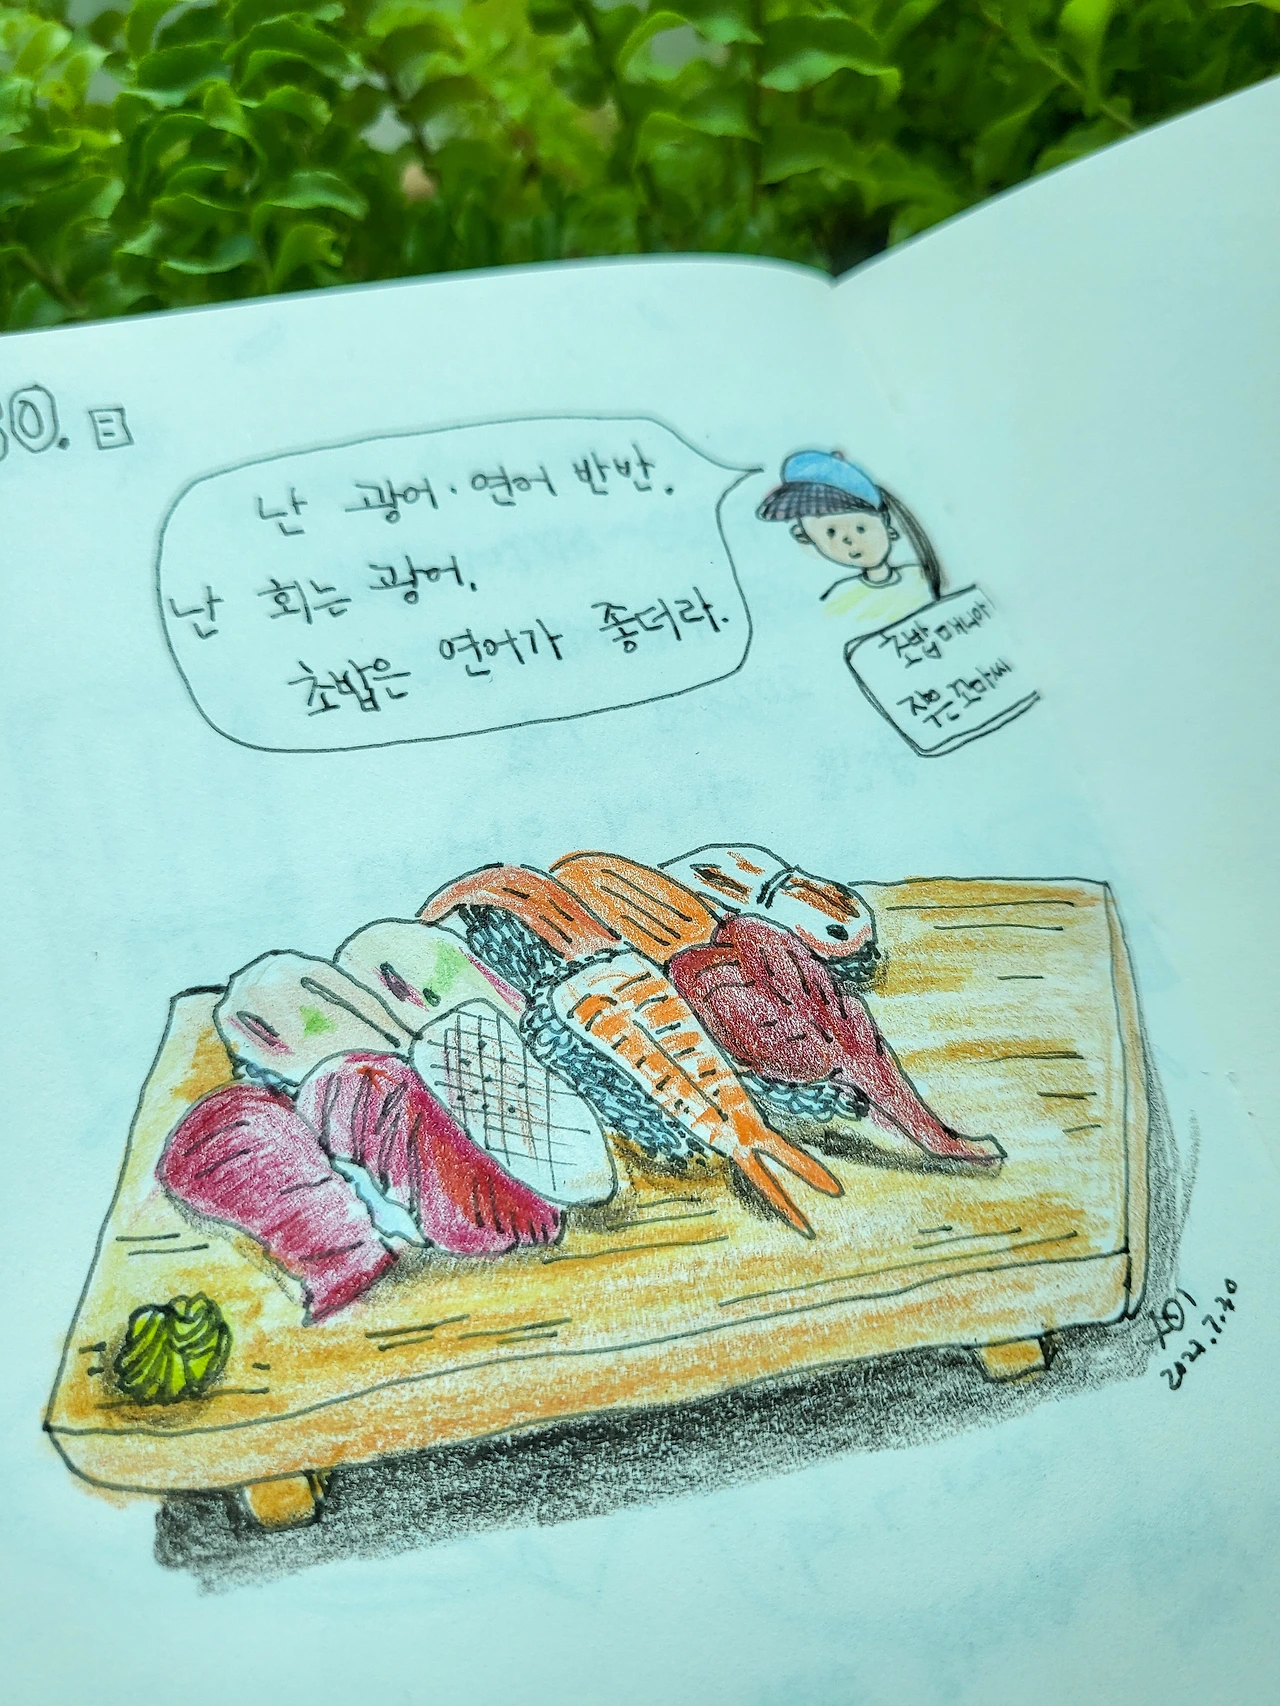 30. 토
난 광어·연어 반반.
난 회는 광어.
초밥은 연어가 좋더라.
초밥 매니아
작은꼬마씨
2022.7.30